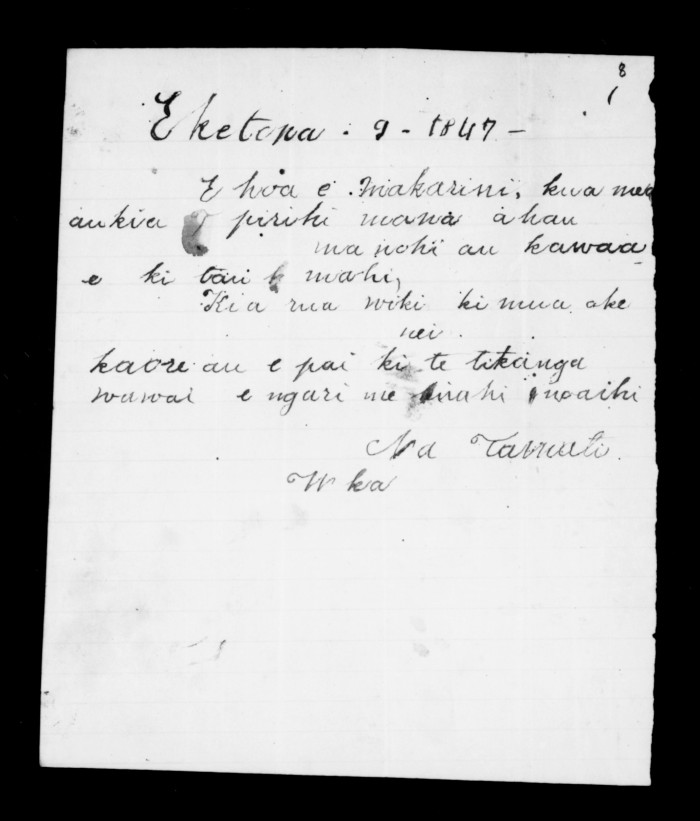 8
1
Eketona . 9 - 1847 -
E hoa e Makarini, kua mea
au kia pirihi mana ahau
ma nohi au kawaa
e ki tau mahi,
Kia rua wiki ki mua ake
nei.
kaore au e pai ki te tikanga
wawai e ngari me
Na
W ka